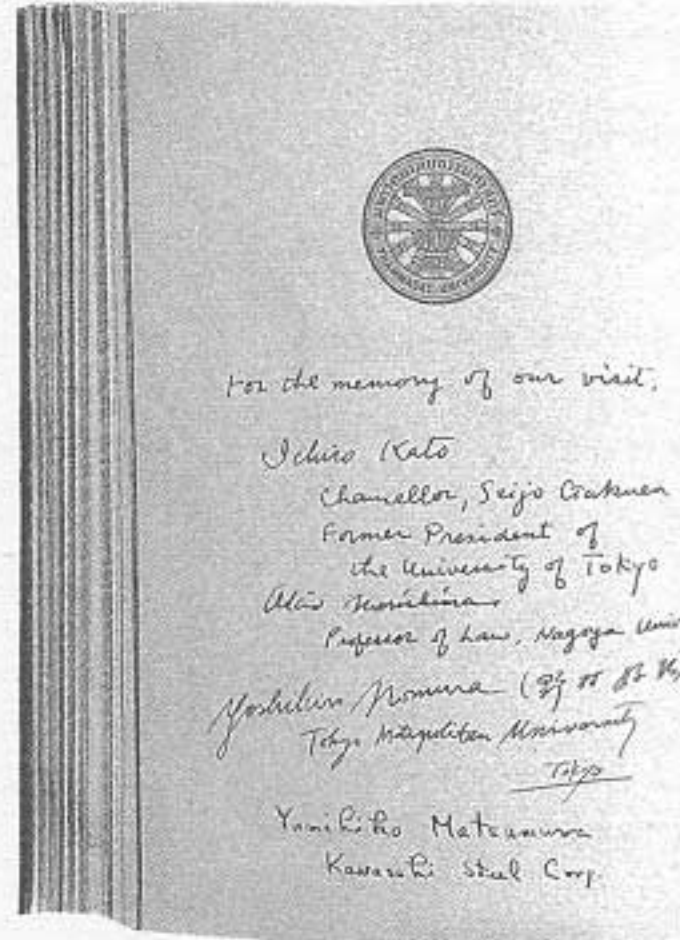 มหาวิทยาลัยธรรมศาสตร์
THAMMASAT UNIVERSITY
For the memory of our visit.
Ichiro Kato
Chancellor, Seijo Gakuen
Former President of
the University of Tokyo
Akio Morishima
Professor of Law, Nagoya Univ
Yoshihiro Nomura (野村好弘)
Tokyo Metropolitan University
Tokyo
Yukihiko Matsumura
Kawasaki Steel Corp.